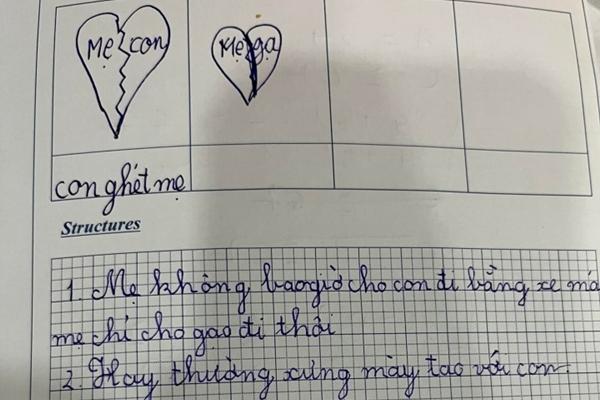 Mẹ con
Mẹ gạ
con ghét mẹ
Structures
1. Mẹ không bao giờ cho con đi bằng xe mà
mẹ chỉ cho gạo đi thôi
2. Hay thường xưng mày tao với con